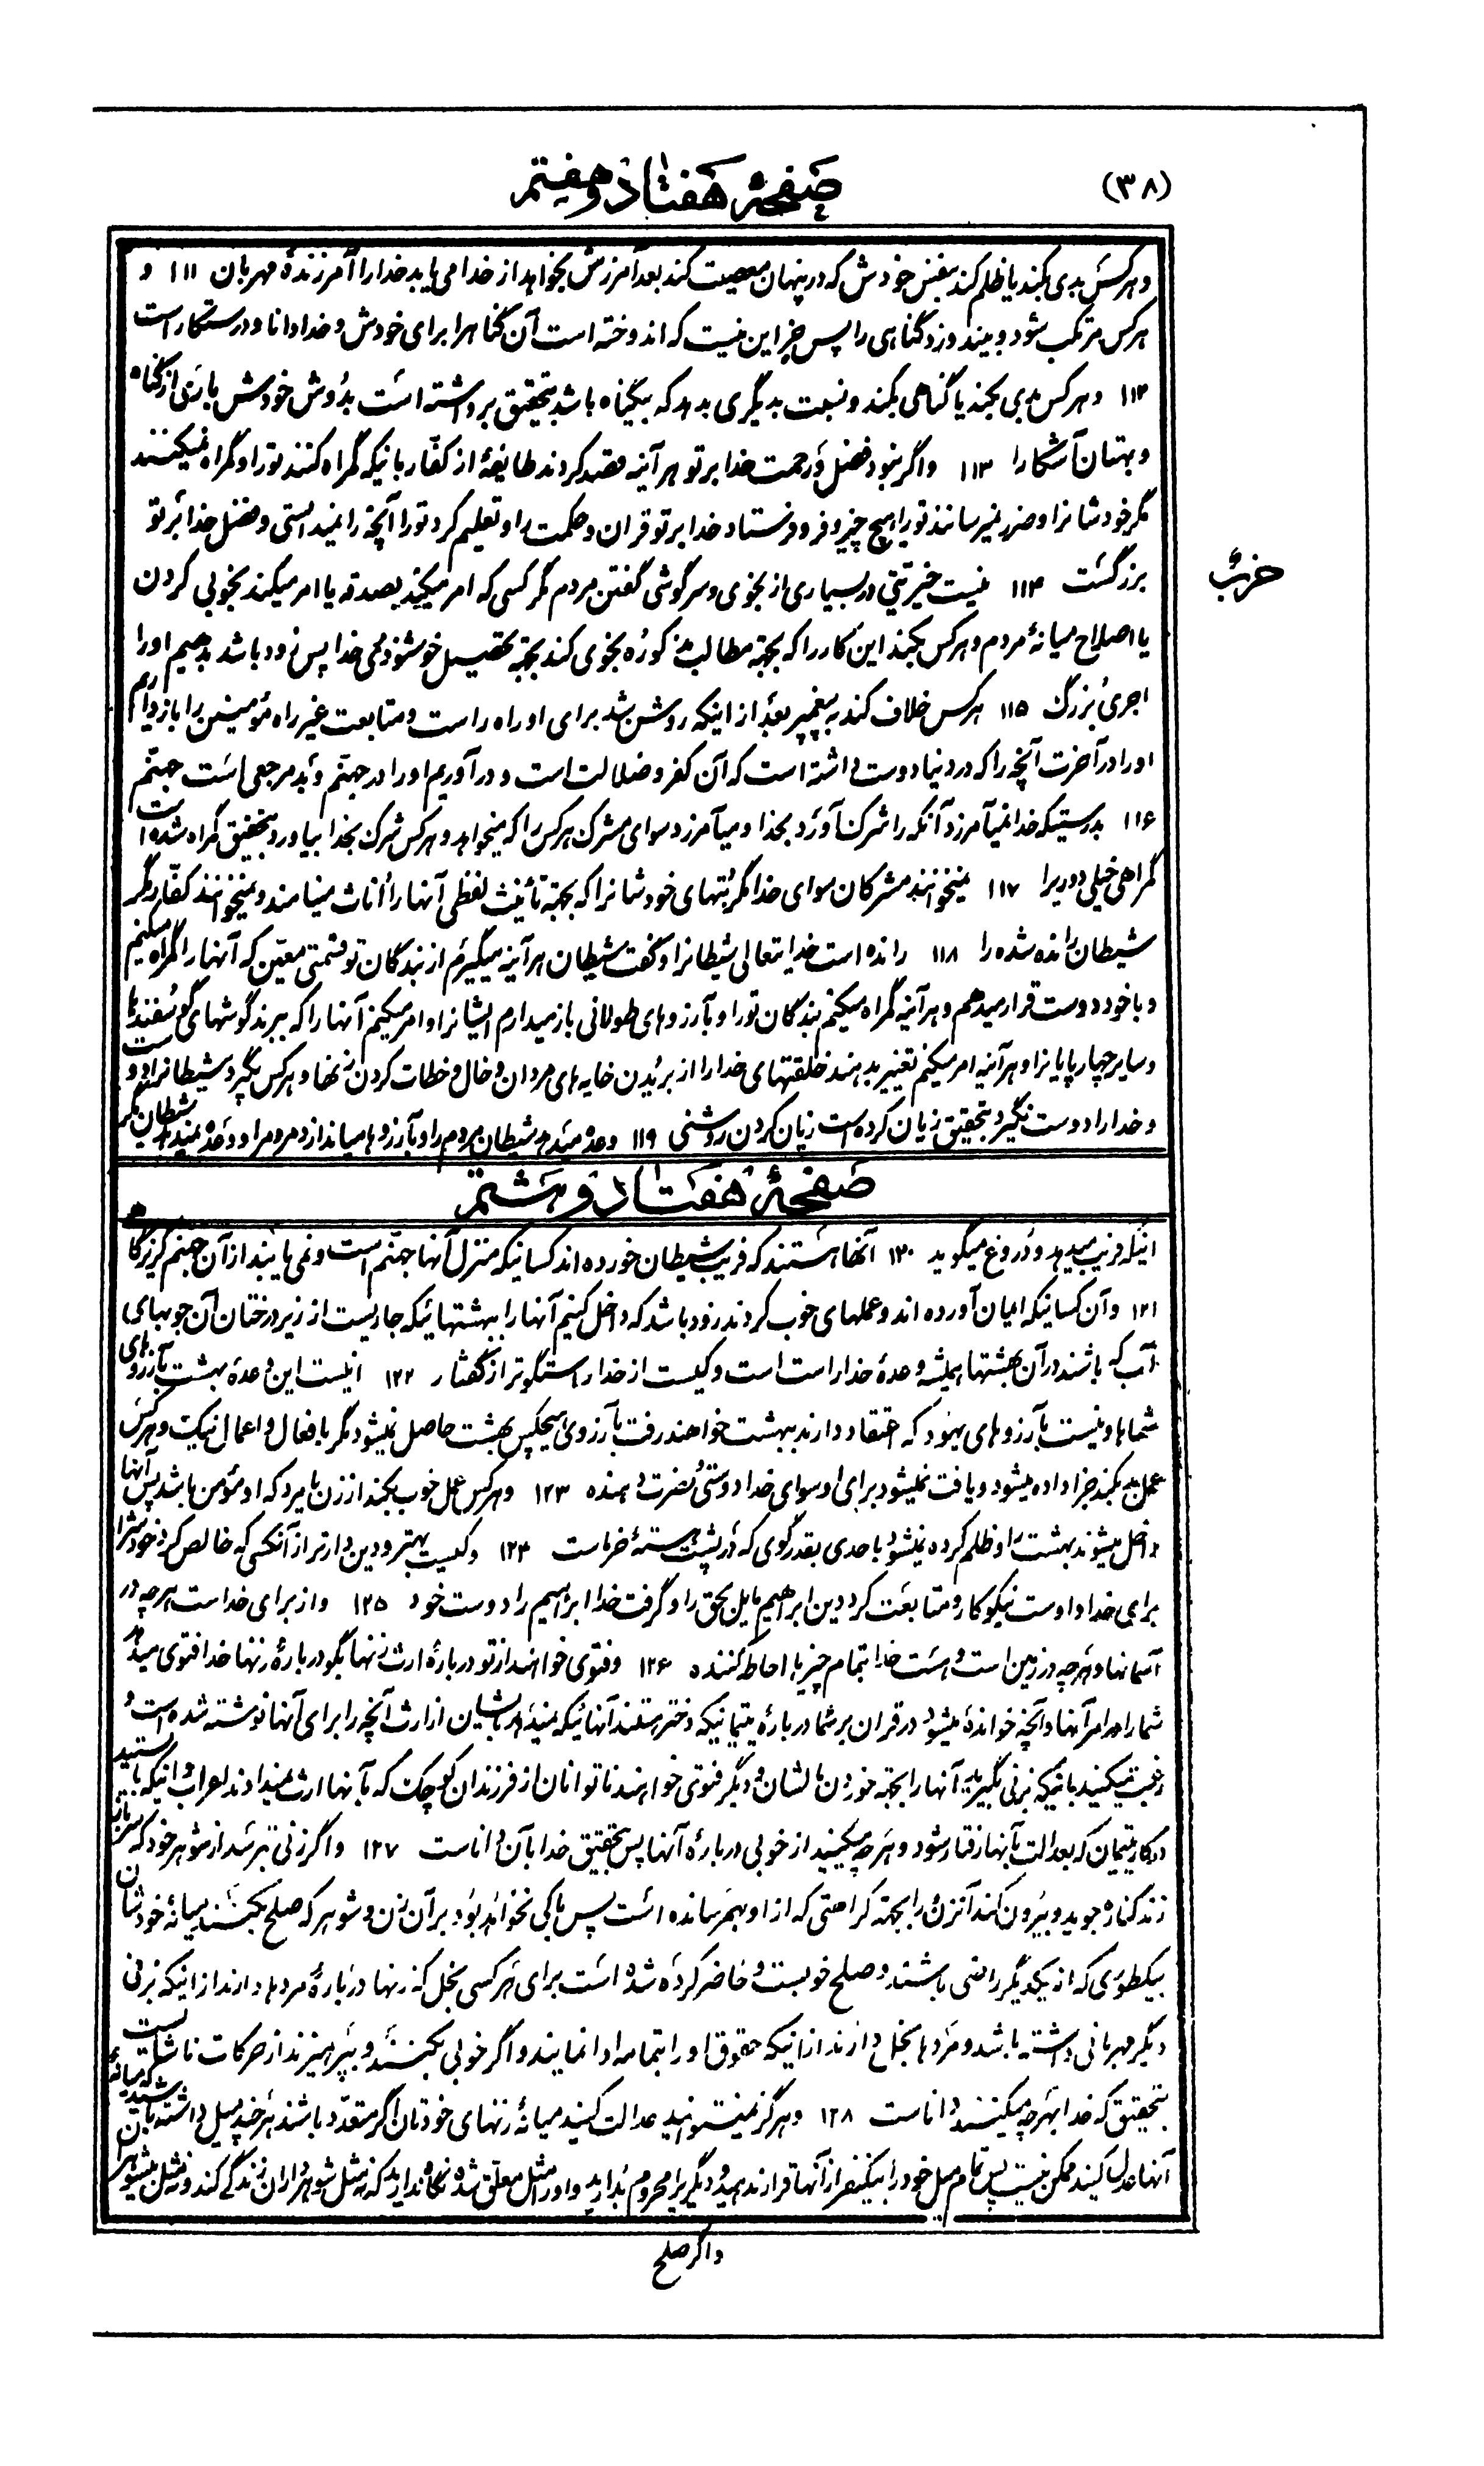 (۳۸)
صفحهٔ هفتاد و هفتم
و هرکس بدی بکند یا ظلم کند بنفس خودش که در پنهان معصیت کند بعد آمرزش بخواهد از خدا می یابد خدا را آمرزندهٔ مهربان ۱۱۱ و
هرکس مرتکب شود و بیندوزد گناهی را پس جز این نیست که اندوخته است آن گناه را برای خودش و خدا دانا و درستکار است
۱۱۲ و هرکس بدی بکند یا گناهی بکند و نسبت بدیگری بدهد که بیگناه باشد بتحقیق برداشته است بدوش خودش باری از گناه
و بهتان آشکارا ۱۱۳ و اگر نبود فضل و رحمت خدا بر تو هر آینه قصد کردند طایفهٔ از کفار بانیکه گمراه کنند تو را و گمراه نمیکنند
مگر خودشانرا و ضرر نمیرسانند تو را هیچ چیز و فرو فرستاد خدا بر تو قران و حکمت را و تعلیم کرد تو را آنچه را نمیدانستی و فضل خدا بر تو
بزرگست ۱۱۴ نیست خیریتی در بسیاری از نجوی و سرگوشی گفتن مردم مگر کسی که امر میکند بصدقه یا امر میکند بخوبی کردن
حزب
یا اصلاح میانهٔ مردم و هرکس بکند این کار را که بجهة مطالب مذکوره نجوی کند بجهة تحصیل خوشنودی خدا پس زود باشد بدهیم او را
اجری بزرگ ۱۱۵ هرکس خلاف کند به پیغمبر بعد از اینکه روشن شد برای او راه راست و متابعت غیر راه مؤمنین را باز داریم
او را در آخرت آنچه را که در دنیا دوست داشته است که آن کفر و ضلالت است و در آوریم او را در جهنم و بد مرجعی است جهنم
۱۱۶ بدرستیکه خدا نمیآمرزد آنکه را شرک آورد بخدا و میآمرزد سوای مشرک هرکس را که میخواهد و هرکس شرک بخدا بیاورد بتحقیق گمراه شده است
گمراهی خیلی دور را ۱۱۷ نمیخوانند مشرکان سوای خدا مگر بتهای خودشانرا که بجهة تأنیث لفظی آنها را اناث مینامند و نمیخوانند کفار مگر
شیطان رانده شده را ۱۱۸ رانده است خدایتعالی شیطانرا و گفت شیطان هر آینه میگیرم از بندگان تو قسمتی معین که آنها را گمراه میکنم
و با خود دوست قرار میدهم و هر آینه گمراه میکنم بندگان تو را و بآرزوهای طولانی باز میدارم ایشانرا و امر میکنم آنها را که ببرند گوشهای گوسفندها
و سایر چهارپایانرا و هر آینه امر میکنم تغییر بدهند خلقتهای خدا را از بریدن خایه های مردان و خال و خطات کردن زنها و هرکس بگیرد شیطانرا دوست
و خدا را دوست نگیرد بتحقیق زیان کرده است زیان کردن روشنی ۱۱۹ وعده میدهد شیطان مردم را و بآرزوها میاندازد مردم را و وعده نمیدهد شیطان مگر
صفحهٔ هفتاد و هشتم
اینکه فریب میدهد و دروغ میگوید ۱۲۰ آنها هستند که فریب شیطان خورده اند کسانیکه منزل آنها جهنم است و نمی یابند از آن جهنم گریزگاه
۱۲۱ و آن کسانیکه ایمان آورده اند و عملهای خوب کردند زود باشد که داخل کنیم آنها را ببهشتهائیکه جاریست از زیر درختان آن جویهای
آب که باشند در آن بهشتها همیشه وعدهٔ خدا راست است و کیست از خدا راستگوتر از گفتار ۱۲۲ نیست این وعدهٔ بهشت بآرزوهای
شماها و نیست بآرزوهای یهود که اعتقاد دارند ببهشت خواهند رفت بآرزوی هیچکس بهشت حاصل نمیشود مگر بافعال و اعمال نیک و هرکس
عمل بد بکند جزا داده میشود و یافت نمیشود برای او سوای خدا دوستی و نصرت دهنده ۱۲۳ و هرکس عمل خوب بکند از زن یا مرد که او مؤمن باشد پس آنها
داخل میشوند بهشت را و ظلم کرده نمیشود باحدی بقدر گوی که در پشت هستهٔ خرماست ۱۲۴ و کیست بهتر و دین دارتر از آنکسی که خالص کرد خودش را
برای خدا و اوست نیکوکار و متابعت کرد دین ابراهیم مایل بحق را و گرفت خدا ابراهیم را دوست خود ۱۲۵ و از برای خداست هرچه در
آسمانها و هرچه در زمین است و هست خدا بتمام چیزها احاطه کننده ۱۲۶ و فتوی خواهند از تو دربارهٔ ارث زنها بگو دربارهٔ زنها خدا فتوی میدهد
شما را در امر آنها و آنچه خوانده میشود در قران بر شما دربارهٔ یتیمانیکه دختر هستند آنهائیکه نمیدهید بایشان از ارث آنچه را برای آنها نوشته شده است و
رغبت میکنید بانیکه بزنی بگیرید آنها را بجهة خوردن مالشان و دیگر فتوی خواهند ناتوانان از فرزندان کوچک که بآنها ارث نمیدادند اعراب و اینکه بایستید
در کار یتیمان که بعدالت بآنها رفتار شود و هرچه میکنید از خوبی دربارهٔ آنها پس بتحقیق خدا بآن داناست ۱۲۷ و اگر زنی بترسد از شوهر خود که سر باز
زند کناره جوید و بیرون کند آنزن را بجهة کراهتی که از او بهم رسانده است پس باکی نخواهد بود بر آن زن و شوهر که صلح بکنند میانهٔ خودشان
بیکطوری که از یکدیگر راضی باشند و صلح خوبست و حاضر کرده شده است برای هر کسی بخل که زنها دربارهٔ مردها دارند از اینکه بزنی
دیگر مهربانی داشته باشد و مردها بخل دارند از اینکه حقوق او را بتمامه ادا نمایند و اگر خوبی بکنند و بپرهیزند از حرکات ناشایست
بتحقیق که خدا بهرچه میکنند داناست ۱۲۸ و هرگز نمیتوانید عدالت کنید میانهٔ زنهای خودتان اگر متعدد باشند هر چند میل داشته باشید که میانهٔ
آنها عدل کنید ممکن نیست پس تمام میل خود را بیکنفر از آنها قرار ندهید و دیگری را محروم بدارید و او را مثل معلق شده نگاه ندارید که نه مثل شوهرداران زندگی کند و نه مثل بیشوهر
و اگر صلح